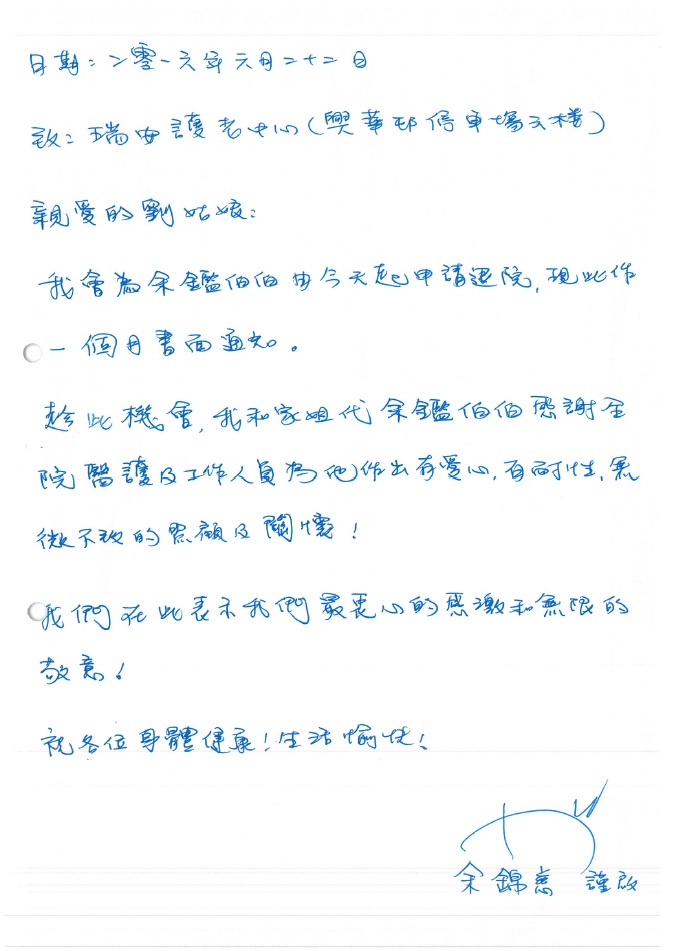 日期：二零一六年六月二十二日
致：瑞安護老中心（興華邨停車場天楼）
親愛的劉姑娘：
我會為余鑑伯伯由今天起申請退院，現此作
一個月書面通知。
趁此機會，我和家姐代余鑑伯伯感謝全
院醫護及工作人員為他作出有愛心，有耐性，無
微不致的照顧及關懷！
我們在此表示我們最衷心的感激和無限的
敬意！
祝各位身體健康！生活愉快！
余錦 謹啟